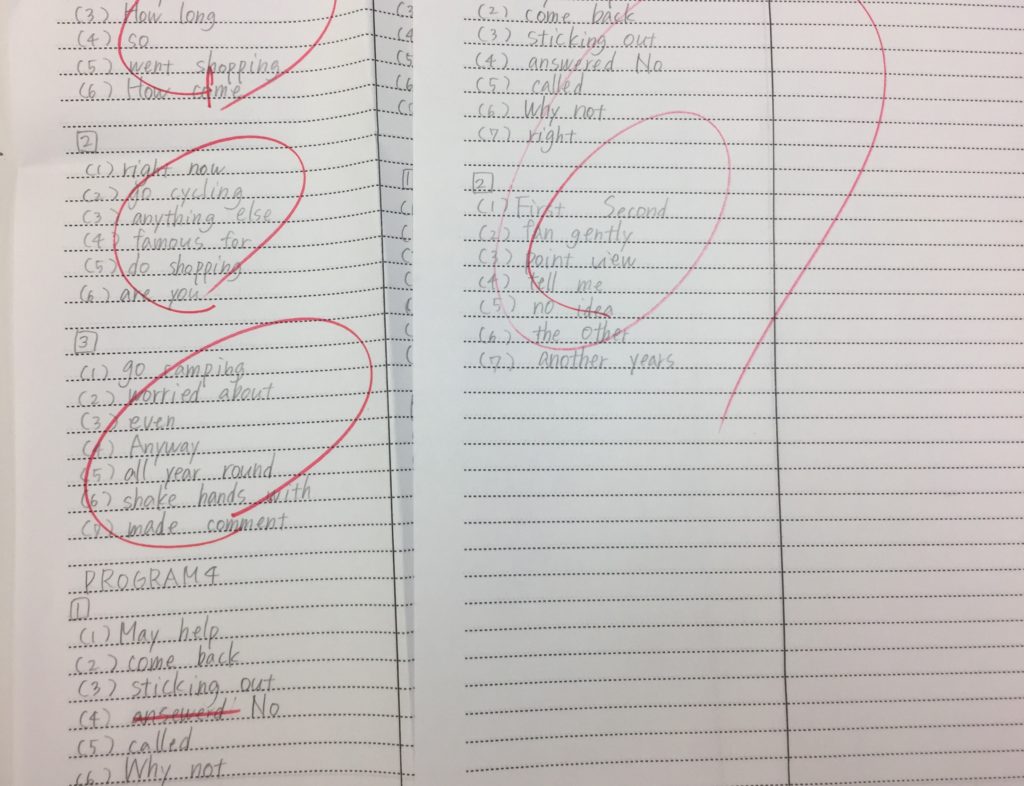 (3) How long
(4) so
(5) went shopping
(6) How come
2
(1) right now
(2) go cycling
(3) anything else
(4) famous for
(5) do shopping
(6) are you
3
(1) go camping
(2) worried about
(3) even
(4) Anyway
(5) all year round
(6) shake hands with
(7) made comment
PROGRAM4
1
(1) May help
(2) come back
(3) sticking out
(4) No
(5) called
(6) Why not
(2) come back
(3) sticking out
(4) answered No
(5) called
(6) Why not
(7) right
2
(1) First Second
(2) fan gently
(3) point view
(4) tell me
(5) no idea
(6) the other
(7) another years